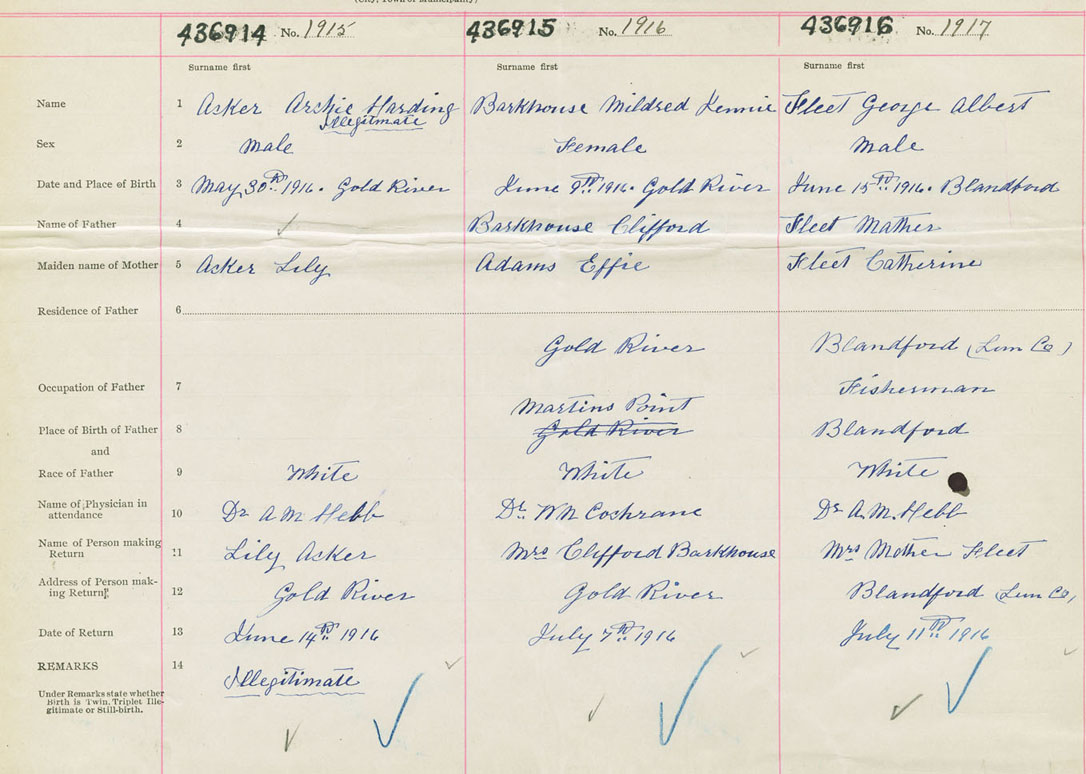 (City, Town or Municipality)
436914 No. 1915 436915 No. 1916 436916 No. 1917
Surname first Surname first Surname first
Name 1 Asker Archie Harding Barkhouse Mildred Jennie Fleet George Albert
Illegitmate
Sex 2 Male Female Male
Date and Place of Birth 3 May 30th 1916. Gold River June 9th 1916. Gold River June 15th 1916. Blandford
Name of Father 4 Barkhouse Clifford Fleet Mather
Maiden name of Mother 5 Acker Lily Adams Effie Fleet Catherine
Residence of Father 6
Gold River Blandford (Lun Co)
Occupation of Father 7 Fisherman
Martins Point
Place of Birth of Father 8 Gold River Blandford
and
Race of Father 9 White White White
Name of Physician in
attendance 10 Dr A M Hebb Dr. W N Cochrane Dr A. M. Hebb
Name of Person making
Return 11 Lily Acker Mrs Clifford Barkhouse Mrs Mother Fleet
Address of Person mak-
ing Return 12 Gold River Gold River Blandford (Lun Co,
Date of Return 13 June 14th 1916 July 7th 1916 July 11th 1916
REMARKS 14 Illegitimate
Under Remarks state whether
Birth is Twin, Triplet Ille-
gitimate or Still-birth.